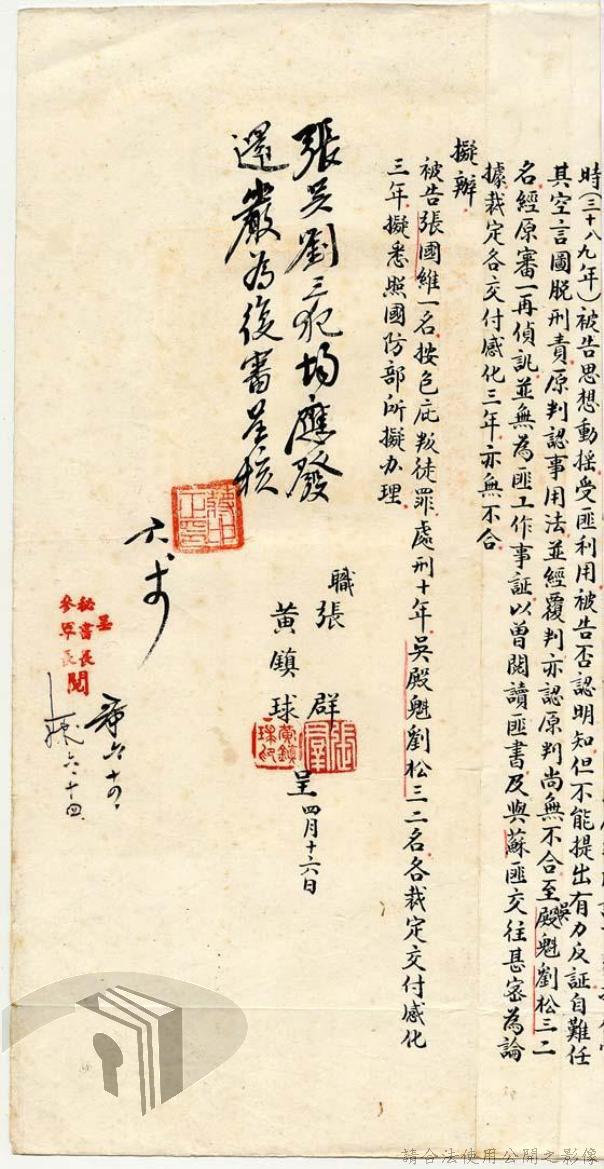 時(三十八九年)被告思想動搖受匪利用被告否認明知但不能提出有力反証自難任
其空言圖脫刑責原判認事用法並經覆判亦認原判尚無不合至吳殿魁劉松三二
名經原審一再偵訊並無為匪工作事証以曾閱讀匪書及與蘇匪交往甚密為論
據裁定各交付感化三年亦無不合
擬辦
被告張國維一名按包庇叛徒罪處刑十年吳殿魁劉松三二名各裁定交付感化
三年擬悉照國防部所擬办理
職張群
黃鎮球
呈四月十六日
張群
黃鎮球印
張吳劉三犯均應發
還嚴為復審呈核
蔣中正印
呈
秘書長
參軍長
閱
六、十四
請合法使用公開之影像